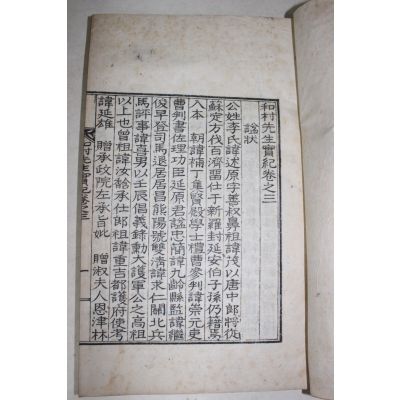 和村先生實紀卷之三
諡狀
公姓李氏諱述原字善叔鼻祖諱茂以唐中郞將從
蘇定方伐百濟留仕于新羅封延安伯子孫仍籍焉
入本 朝諱楠丁集賢殿學士禮曹參判諱崇元吏
曹判書佐理功臣延原君諡忠簡諱九齡縣監諱繼
俊早登司馬退居居昌熊陽號雙淸諱求仁關北兵
馬評事諱直男以壬辰倡義錄勳大護軍公之高祖
以上也曾祖諱汝 承仕郞祖諱重吉都護府使考
諱延雄 贈承政院左承旨妣 贈淑夫人恩津林
和村先生實紀卷之三